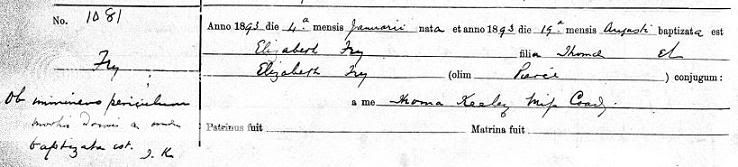 No. 1081
Anno 1893 die 4.a mensis Januarii nata et anno 1893 die 19.a mensis Augusti baptizata est
Fry
Elizabeth Fry filia Thomae Et
Elizabeth Fry (olim Pierce ) conjugum:
Ob imminens periculum
mortis Domi a
baptizata est. J. K
a me Thoma Keeley Miss Coady.
Patrinus fuit Matrina fuit